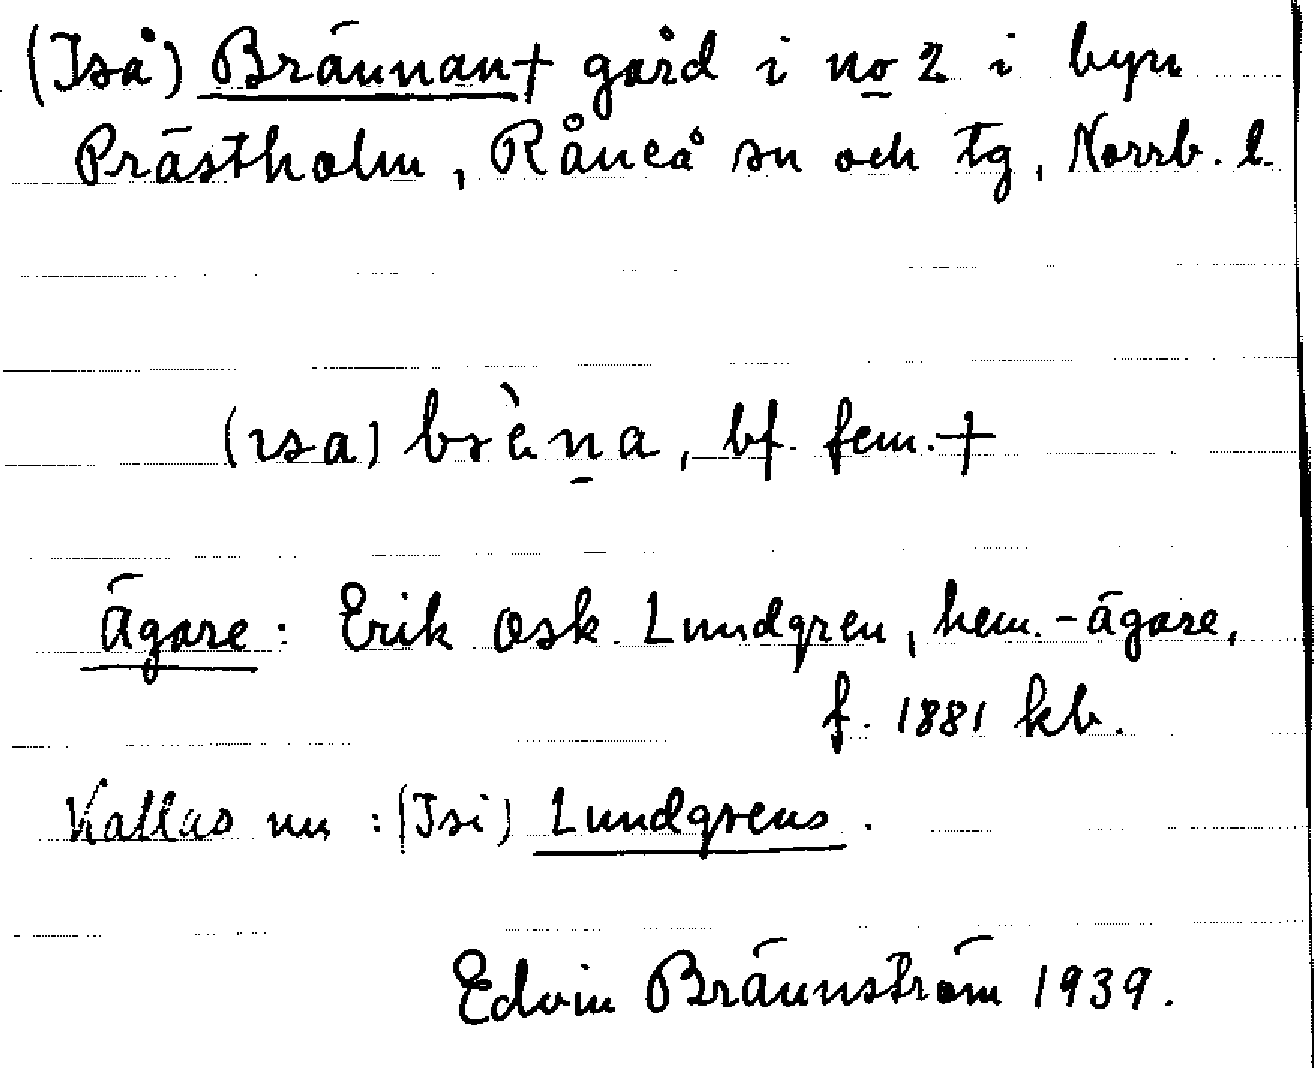 (Iså) Brännan + gård i no 2 i byn
Prästholm, Råneå sn och tg, Norrb. l.
(ısa) brὲna, bf. fem. +
Ägare: Erik Osk. Lundgren, hem.-ägare,
f. 1881 kb.
Kallas nu: (Isi) Lundgrens.
Edvin Brännström 1939.